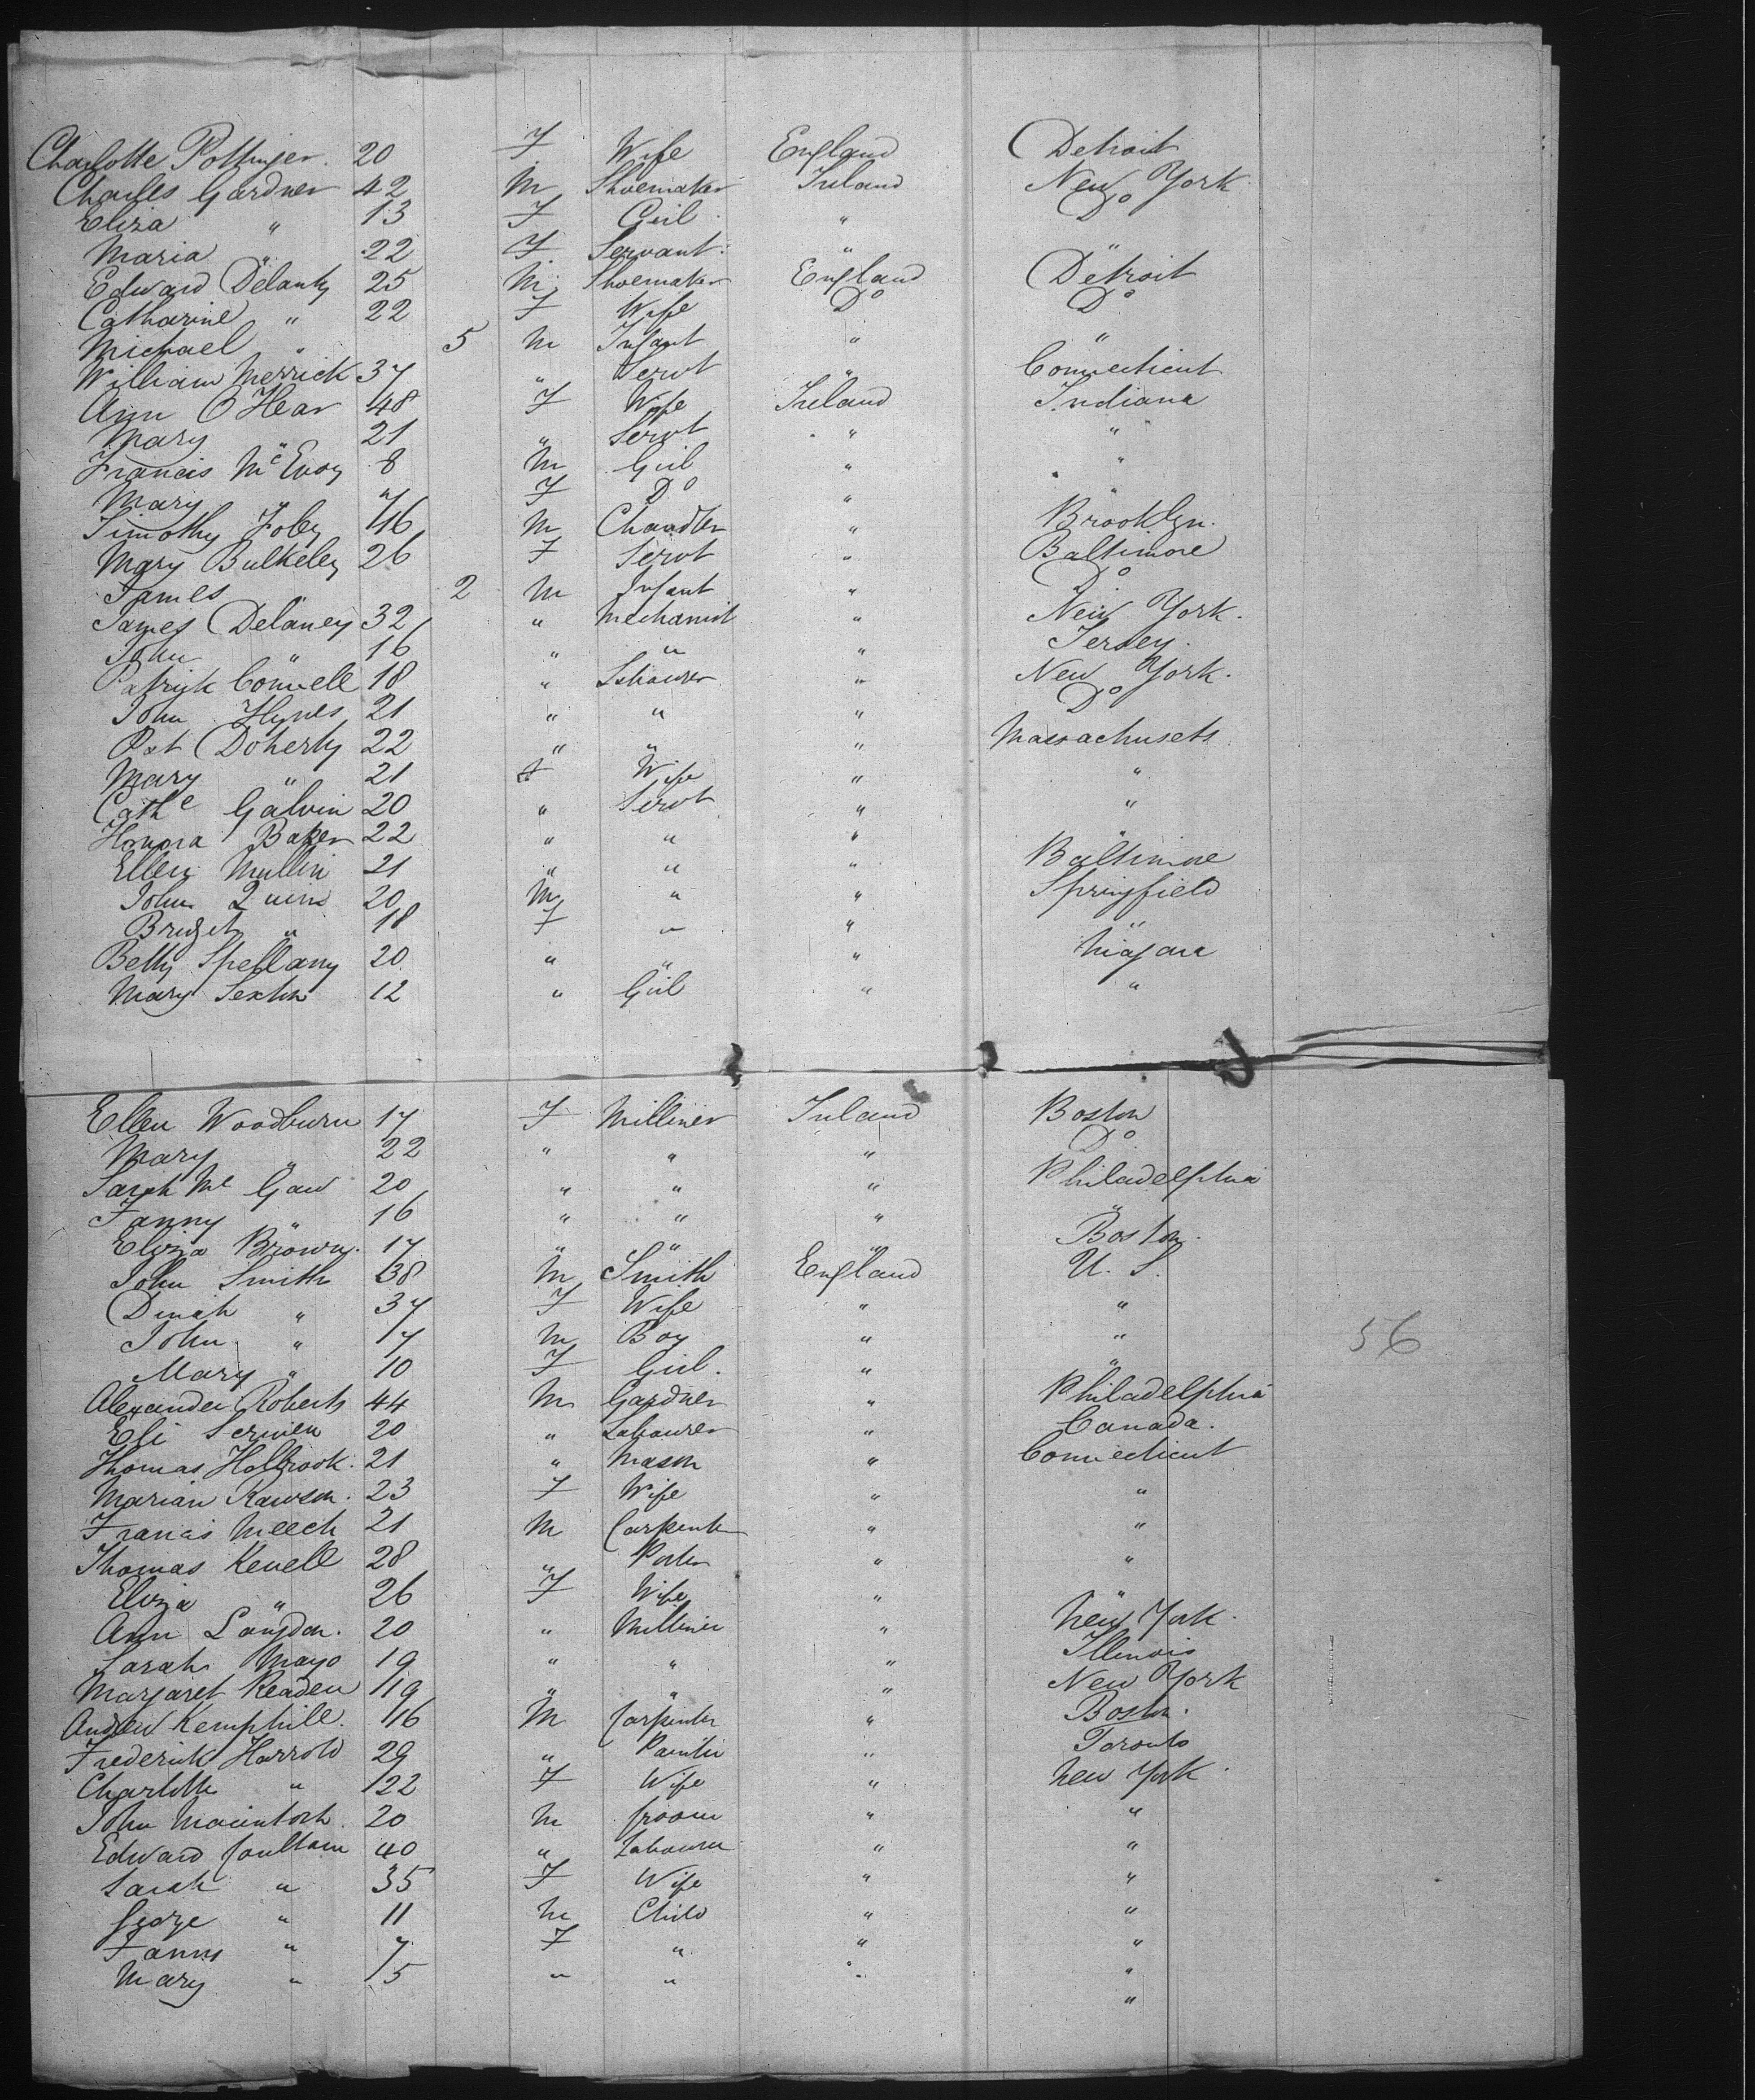 Charlotte Pottinger. 20 F Wife England Detroit
Charles Gardner 42 M Shoemaker Ireland New York
Eliza " 13 F Girl " Do
Maria " 22 F Servant " "
Edward Delanty 25 M Shoemaker England Detroit
Catharine " 22 F Wife Do Do
Michael " 5 M Infant " "
William Merrick 37 " Servt " Connecticut
Ann O Hear 48 F Wife Ireland Indiana
Mary " 21 " Servt " "
Francis McEvoy 8 M Girl " "
Mary " 7 F Do " "
Timothy Foley 46 M Chandler " Brooklyn.
Mary Bulkeley 26 F Servt " Baltimore
James " 2 M Infant " Do
James Delaney 32 " Mechanist " New York.
John " 16 " " " Jersey.
Patrick Connell 18 " Labourer " New York.
John Hynes 21 " " " Do
Pat Doherty 22 " " " Massachusets
Mary " 21 F Wife " "
Cathe Galvin 20 " Servt " "
Honora Baker 22 " " " "
Ellen Mullin 21 " " " Baltimore
John Quin 20 M " " Springfield
Bridget " 18 F " " "
Betty Spellany 20 " " " Niagara
Mary Sexton 12 " Girl " "
Ellen Woodburn 17 F Milliner Ireland Boston
Mary " 22 " " " Do
Sarah Mc Gaw 20 " " " Philadelphia
Fanny " 16 " " " "
Eliza Brown. 17 " " " Boston.
John Smith 38 M Smith England U. S.
Dinah " 37 F Wife " "
John " 17 M Boy " "
Mary " 10 F Girl. " "
Alexander Roberts 44 M Gardner " Philadelphia
Eli Scriven 20 " Labourer " Canada.
Thomas Holbrook. 21 " Mason " Connecticut
Marian Rawson. 23 F Wife " "
Francis Meech 21 M Carpenter " "
Thomas Kevell 28 " Porter " "
Eliza " 26 F Wife " "
Ann Langdon. 20 " Milliner " New York.
Sarah Mayo 19 " " " Illinois
Margaret Readen 19 " " " New York
Andrew Kemphill. 46 M Carpenter " Boston.
Frederick Harrold 29 " Painter " Toronto
Charlotte " 22 F Wife " New York.
John Macintosh. 20 M Groom " "
Edward Coultam 40 " Labourer " "
Sarah " 35 F Wife " "
George " 11 M Child " "
Fanny " 7 F " " "
Mary " 5 " " " "
"
56